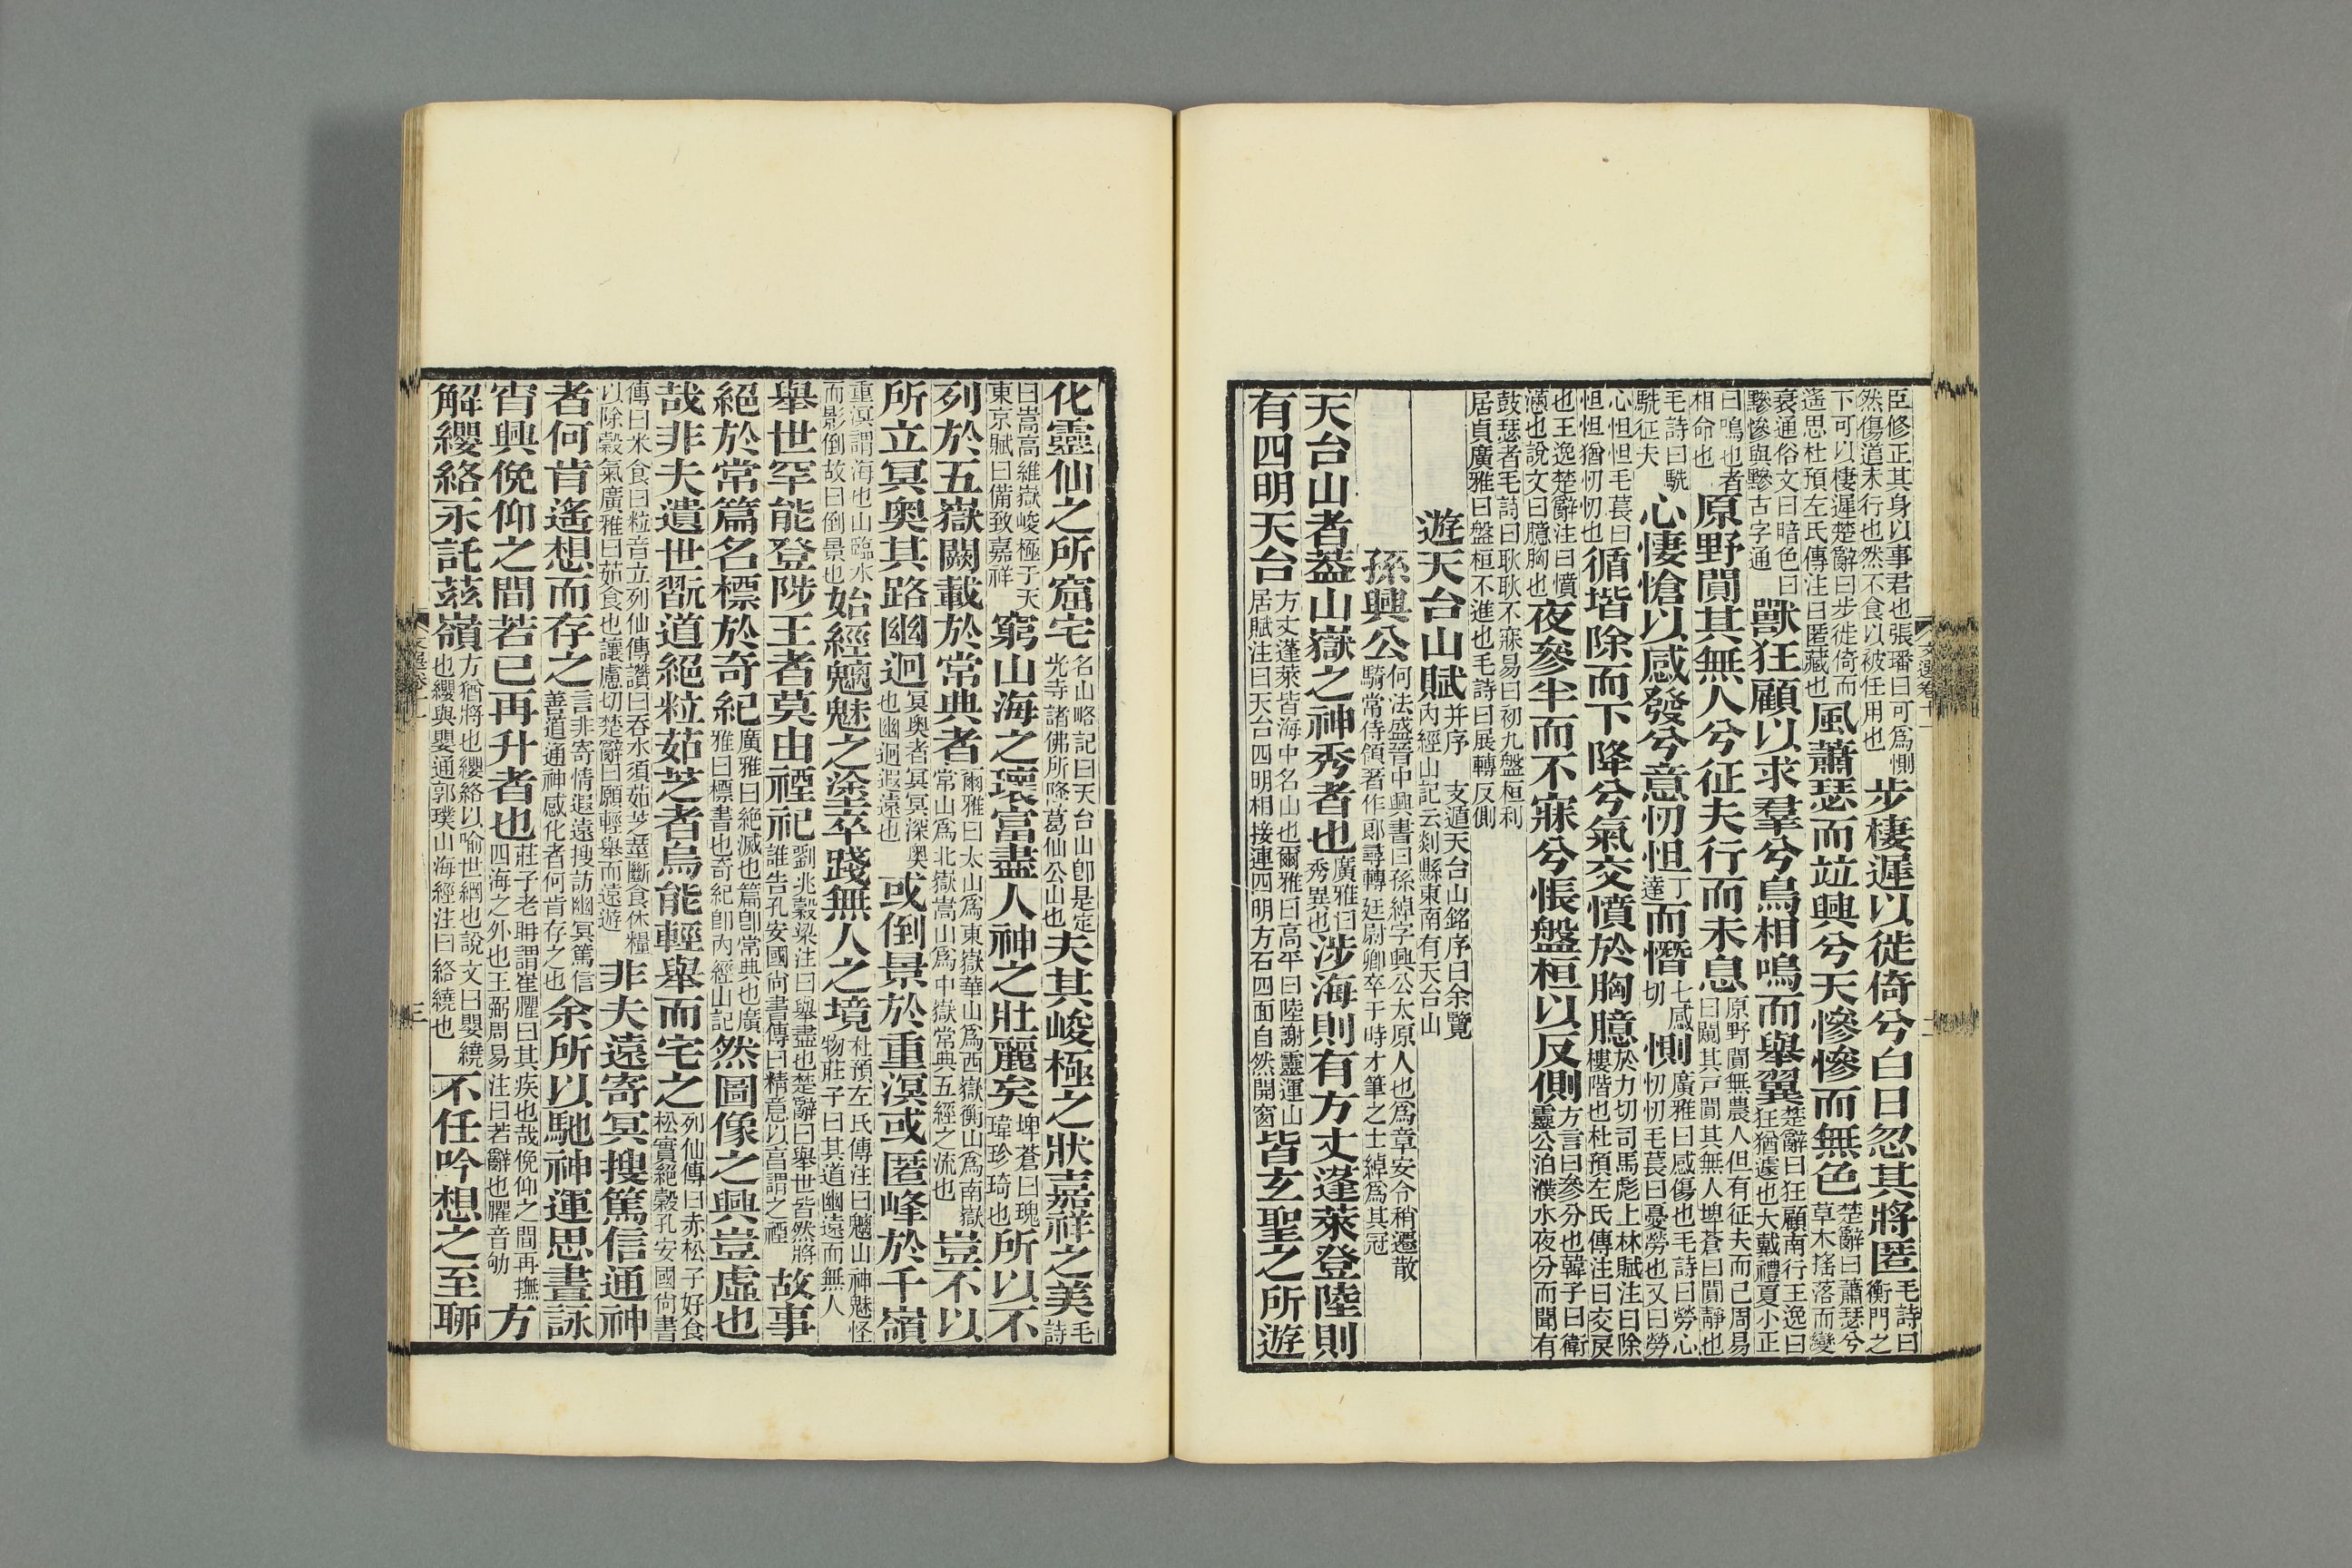 臣修正其身以事君也張璠曰可爲惻然傷道未行也然不食以被任用也步棲遲以徙倚兮白日忽其將匿毛詩曰衡門之
下可以棲遲楚辭曰步徙倚而遙思杜預左氏傳注曰匿藏也風蕭瑟而竝興兮天慘慘而無色楚辭曰蕭瑟兮草木搖落而變
衰通俗文曰暗色曰黲慘與黲古字通獸狂顧以求羣兮鳥相鳴而舉翼楚辭曰狂顧南行王逸曰狂猶遽也大戴禮夏小正
曰鳴也者相命也原野闃其無人兮征夫行而未息原野闃無農人但有征夫而已周易曰闚其戶闃其無人埤蒼曰闃靜也
毛詩曰駪駪征夫心悽愴以感發兮意忉怛丁達而憯七感切惻廣雅曰感傷也毛詩曰勞心忉忉毛萇曰憂勞也又曰勞
心怛怛毛萇曰怛怛猶忉忉也循堦除而下降兮氣交憤於胸臆於力切司馬彪上林賦注曰除樓階也杜預左氏傳注曰交戾
也王逸楚辭注曰憤懣也說文曰臆胸也夜參半而不寐兮悵盤桓以反側方言曰參分也韓子曰衛靈公泊濮水夜分而聞有
鼓瑟者毛詩曰耿耿不寐易曰初九盤桓利居貞廣雅曰盤桓不進也毛詩曰展轉反側
遊天台山賦并序 支遁天台山銘序曰余覽內經山記云剡縣東南有天台山
孫興公何法盛晉中興書曰孫綽字興公太原人也爲章安令稍遷散騎常侍領著作郎尋轉廷尉卿卒于時才筆之士綽爲其冠
天台山者蓋山嶽之神秀者也廣雅曰秀異也涉海則有方丈蓬萊登陸則
有四明天台方丈蓬萊皆海中名山也爾雅曰高平曰陸謝靈運山居賦注曰天台四明相接連四明方石四面自然開窗皆玄聖之所遊
化靈仙之所窟宅名山略記曰天台山卽是定光寺諸佛所降葛仙公山也夫其峻極之狀嘉祥之美毛詩
曰嵩高維嶽峻極于天東京賦曰備致嘉祥窮山海之瓌富盡人神之壯麗矣埤蒼曰瑰瑋珍琦也所以不
列於五嶽闕載於常典者爾雅曰太山爲東嶽華山爲西嶽衡山爲南嶽常山爲北嶽嵩山爲中嶽常典五經之流也豈不以
所立冥奧其路幽迥冥奧者冥冥深奧也幽迥遐遠也或倒景於重溟或匿峰於千嶺
重溟謂海也山臨水而影倒故曰倒景也始經魑魅之塗卒踐無人之境杜預左氏傳注曰魑山神魅怪物莊子曰其道幽遠而無人
舉世罕能登陟王者莫由禋祀劉兆穀梁注曰舉盡也楚辭曰舉世皆然將誰告孔安國尚書傳曰精意以享謂之禋故事
絕於常篇名標於奇紀廣雅曰絕滅也篇卽常典也廣雅曰標書也奇紀卽內經山記然圖像之興豈虛也
哉非夫遺世翫道絕粒茹芝者烏能輕舉而宅之列仙傳曰赤松子好食松實絕穀孔安國尚書
傳曰米食曰粒音立列仙傳讚曰吞水須茹芝莖斷食休糧以除穀氣廣雅曰茹食也讓慮切楚辭曰願輕舉而遠遊非夫遠寄冥搜篤信通神
者何肯遙想而存之言非寄情遐遠搜訪幽冥篤信善道通神感化者何肯存之也余所以馳神運思晝詠
宵興俛仰之間若已再升者也莊子老聃謂崔臞曰其疾也哉俛仰之間再撫四海之外也王弼周易注曰若辭也臞音劬方
解纓絡永託茲嶺方猶將也纓絡以喻世網也說文曰嬰繞也纓與嬰通郭璞山海經注曰絡繞也不任吟想之至聊
三